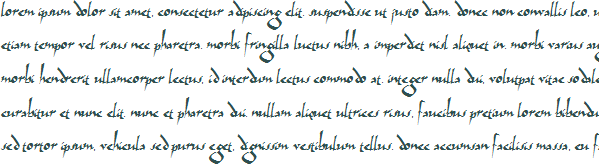 lorem ipsum dolor sit amet, consectetur adipiscing elit. suspendisse ut justo diam. donec non convallis leo.
etiam tempor vel risus nec pharetra. morbi fringilla luctus nibh, a imperdiet nisl aliquet in. morbi varius
morbi hendrerit ullamcorper lectus, id interdum lectus commodo at. integer nulla dui, volutpat vitae
curabitur et nunc elit. nunc et pharetra dui. nullam aliquet ultrices risus, faucibus pretium lorem
sed tortor ipsum, vehicula sed purus eget, dignissim vestibulum tellus. donec accumsan facilisis massa, eu